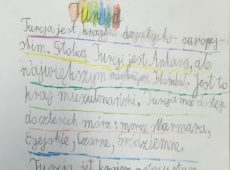 Turcja
Turcja jest krajem azjatycko-europej-
skim. Stolicą Turcji jest Ankara, ale
największym miastem jest Istambuł. Jest to
kraj muzułmański. Turcja ma dostęp
do czterech mórz: morze Marmara,
Egejskie, Czarne, Śródziemne.
Turcja jest krajem